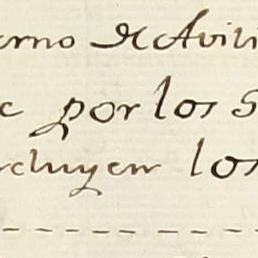 erno de Avili
e por los S
ncluyen los